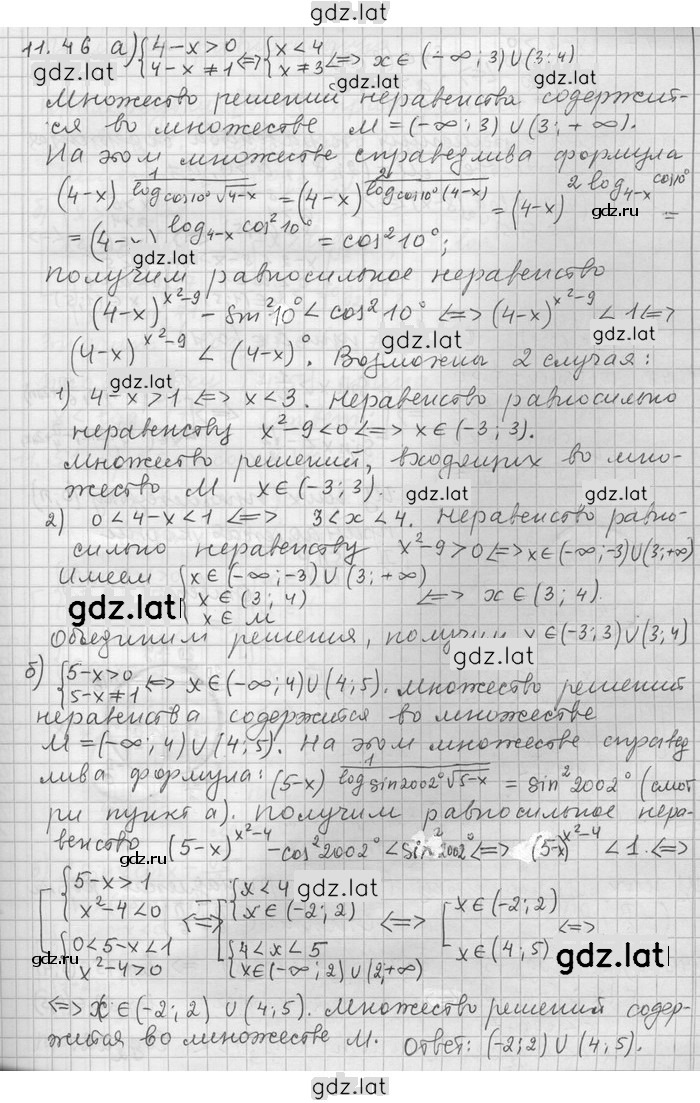 gdz.lat
11.46 а) {4-x>0 {4-x≠1 <=> {x<4 {x≠3 <=> x∈(-∞;3)∪(3;4)
gdz.lat gdz.lat
Множество решений неравенства содержит-
ся во множестве M=(-∞;3)∪(3;+∞).
На этом множестве справедлива формула
(4-x)^(1/log_cos10° √(4-x)) = (4-x)^(2/log_cos10° (4-x)) = (4-x)^(2log_(4-x) cos10°) =
gdz.ru
= (4-x)^(log_(4-x) cos²10°) = cos²10°;
gdz.lat
Получим равносильное неравенство
(4-x)^(x²-9) - sin²10° < cos²10° <=> (4-x)^(x²-9) < 1 <=>
gdz.lat
(4-x)^(x²-9) < (4-x)⁰. Возможны 2 случая:
gdz.lat
1) 4-x>1 <=> x<3. Неравенство равносильно
неравенству x²-9<0 <=> x∈(-3;3).
gdz.lat
Множество решений, входящих во мно-
жество M x∈(-3;3).
gdz.lat
2) 0<4-x<1 <=> 3<x<4. Неравенство равно-
сильно неравенству x²-9>0 <=> x∈(-∞;-3)∪(3;+∞)
Имеем {x∈(-∞;-3)∪(3;+∞) {x∈(3;4) {x∈M <=> x∈(3;4).
gdz.lat gdz.lat
Объединим решения, получим x∈(-3;3)∪(3;4)
б) {5-x>0 {5-x≠1 <=> x∈(-∞;4)∪(4;5). Множество решений
gdz.lat
неравенства содержится во множестве
M=(-∞;4)∪(4;5). На этом множестве справед
лива формула: (5-x)^(1/log_sin2002° √(5-x)) = sin²2002° (смот
ри пункт а). Получим равносильное нера-
gdz.lat
венство (5-x)^(x²-4) - cos²2002° < sin²2002° <=> (5-x)^(x²-4) < 1 <=>
gdz.lat
[{5-x>1 {x²-4<0 {0<5-x<1 {x²-4>0 <=> [{x<4 {x∈(-2;2) {4<x<5 {x∈(-∞;2)∪(2;+∞) <=> [x∈(-2;2) x∈(4;5) <=>
gdz.lat
gdz.ru gdz.lat
<=> x∈(-2;2)∪(4;5). Множество решений содер-
gdz.lat
жится во множестве M. Ответ: (-2;2)∪(4;5).
gdz.lat